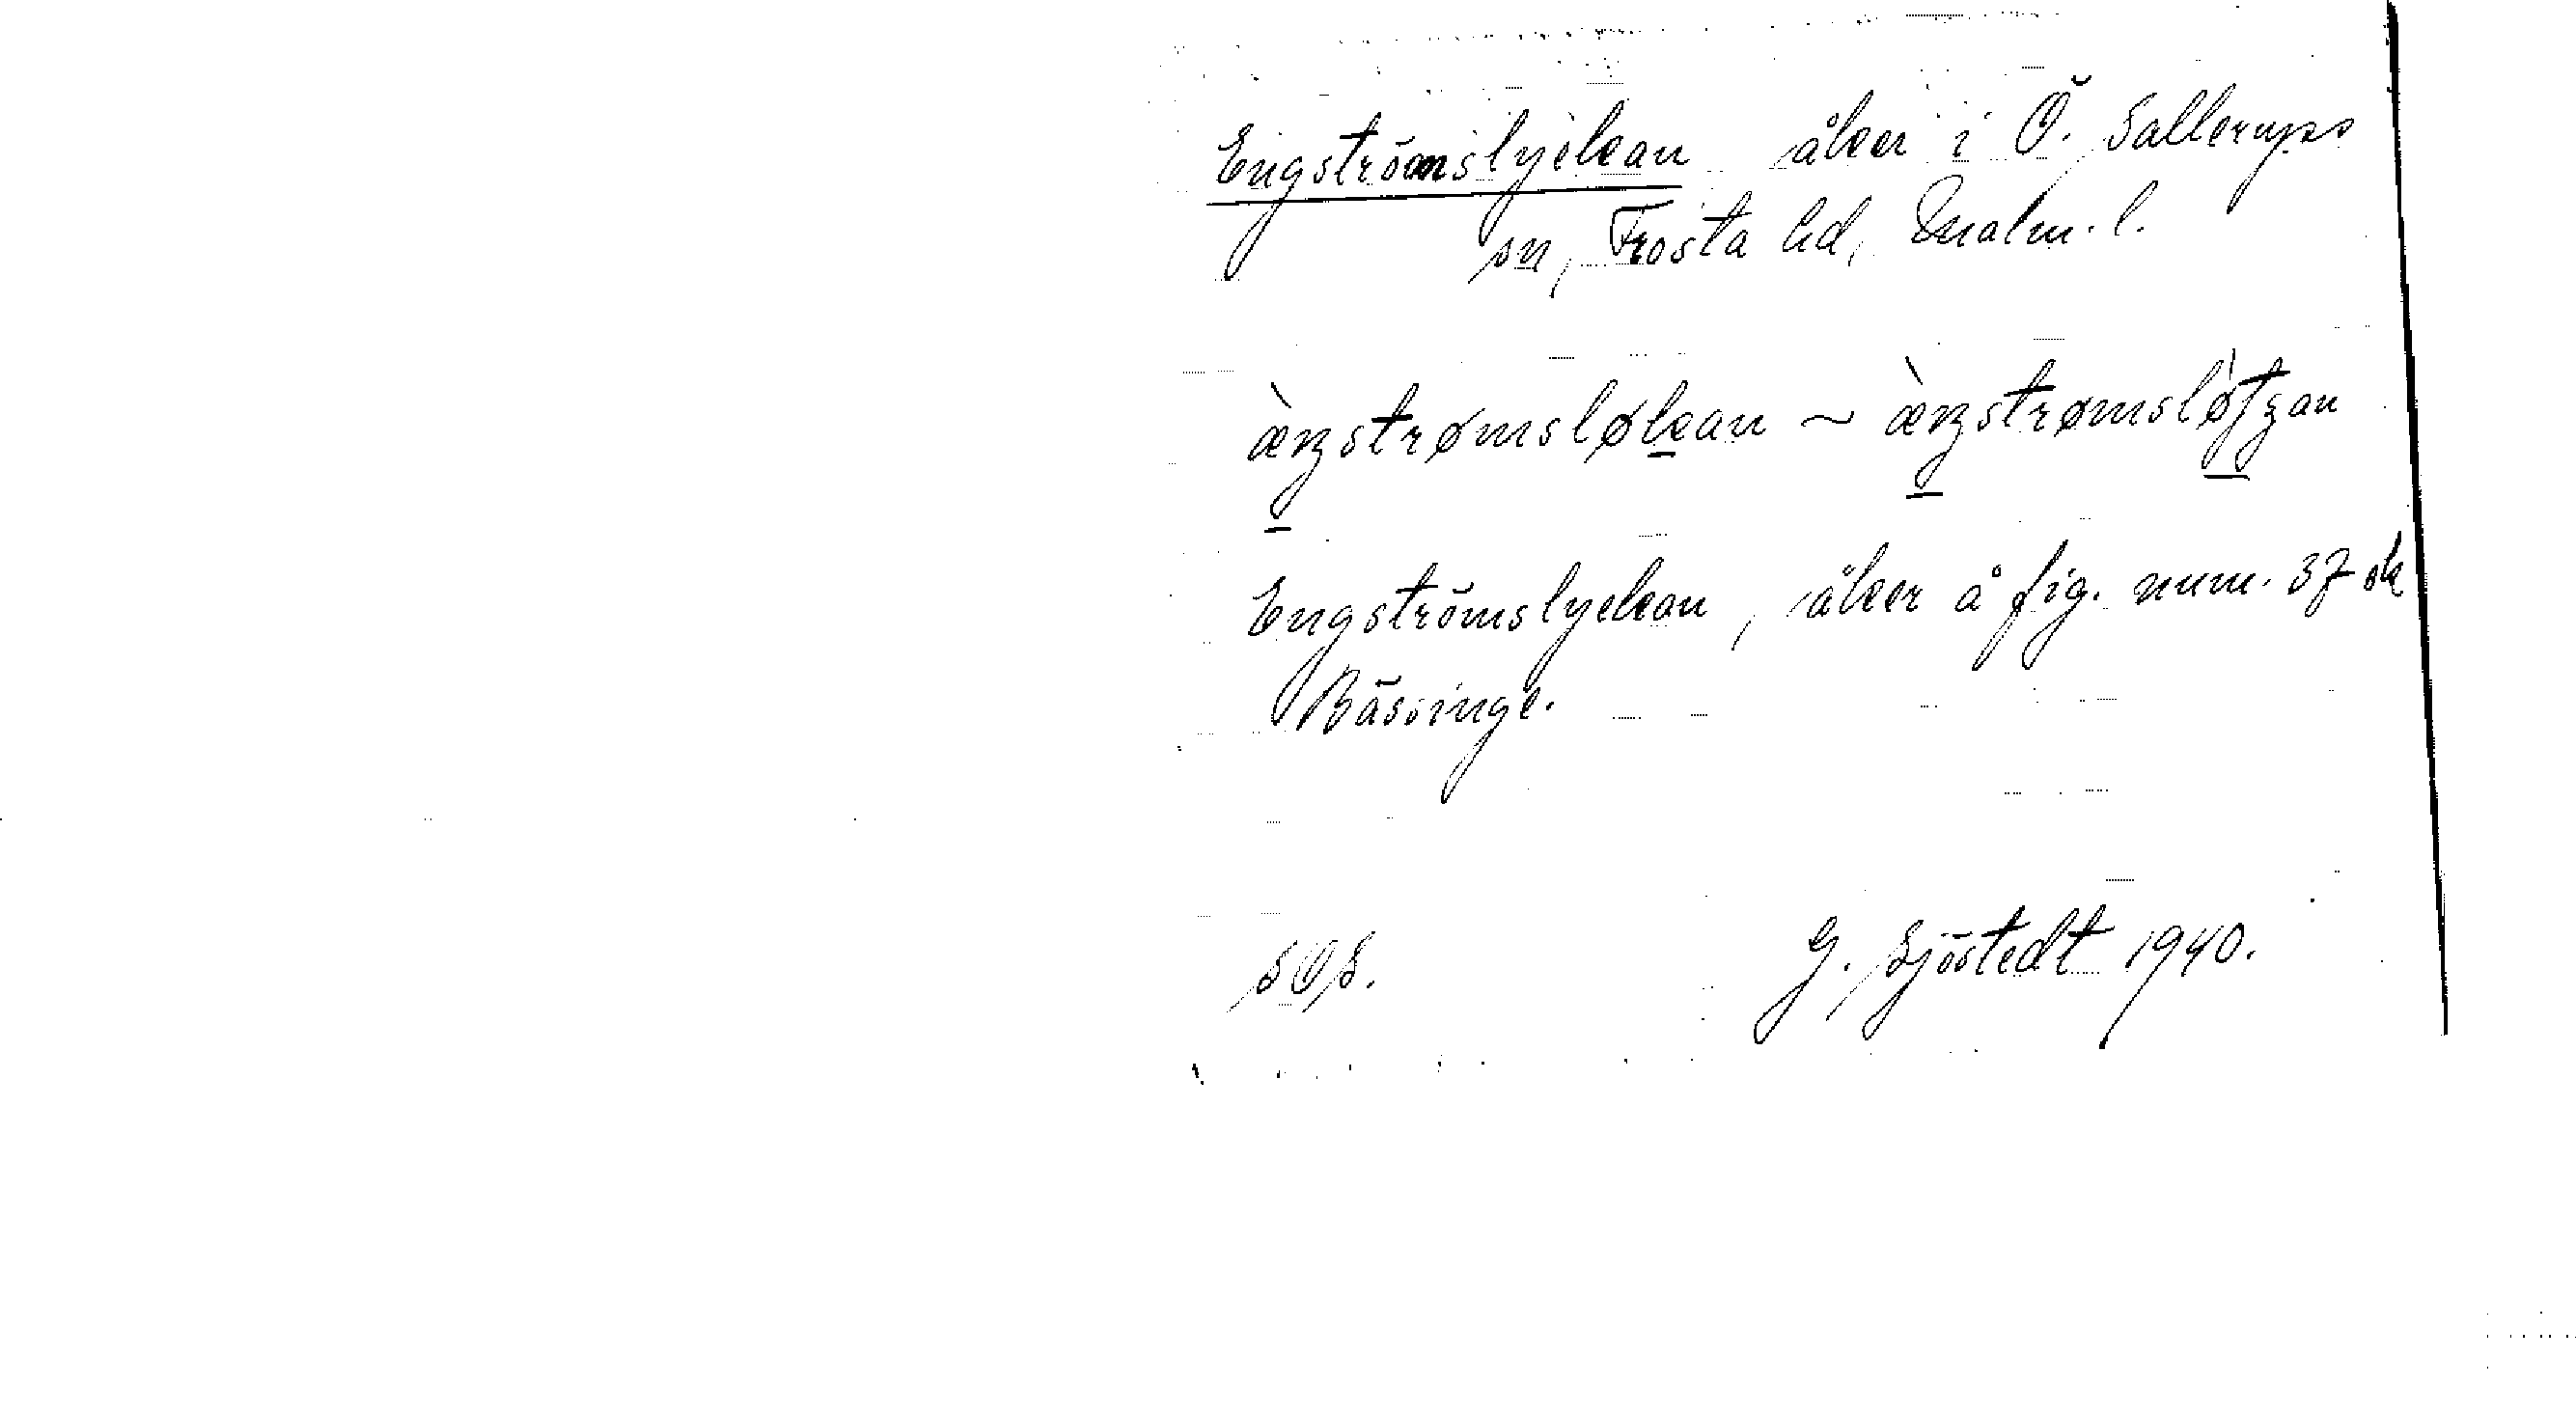 Engströmslyckan åker i Ö. Sallerups
sn, Frosta hd, Malm. l.
æ̀ŋstrømsløkan ~ æ̀ŋstrømslø̀tʒan
Engströmslyckan, åker å fig. num. 37 sk
Bässinge.
SOS. G. Sjöstedt 1940.